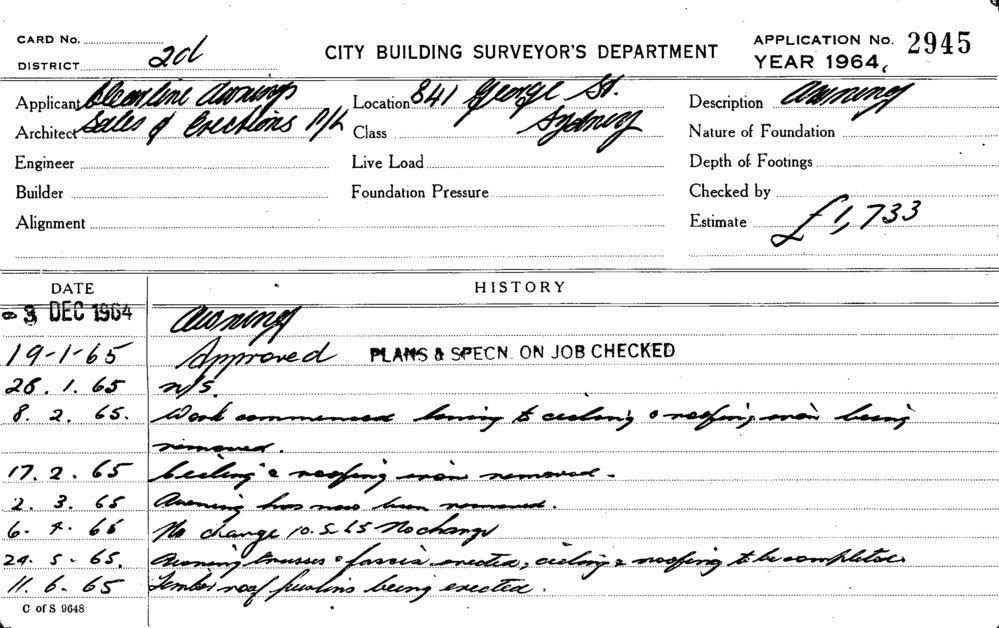 CARD No.
DISTRICT 2d
CITY BUILDING SURVEYOR'S DEPARTMENT
APPLICATION No. 2945
YEAR 1964
Applicant Cleanline Awnings
Architect Sales & Erections P/L
Engineer
Builder
Alignment
Location 841 George St.
Class Sydney
Live Load
Foundation Pressure
Description Awning
Nature of Foundation
Depth of Footings
Checked by
Estimate £1,733
DATE HISTORY
3 DEC 1964 Awning
19-1-65 Approved PLANS & SPECN. ON JOB CHECKED
28. 1. 65 n/s.
8. 2. 65. Work commenced lining to ceiling & roofing iron being
removed.
17. 2. 65 Ceiling & roofing iron removed.
2. 3. 65 Awning has now been removed.
6. 4. 65 No change 10.5.65 No change
24. 5. 65. Awning trusses & fascia erected, ceiling & roofing to be completed.
11. 6. 65 Timber roof purlins being erected.
C of S 9648